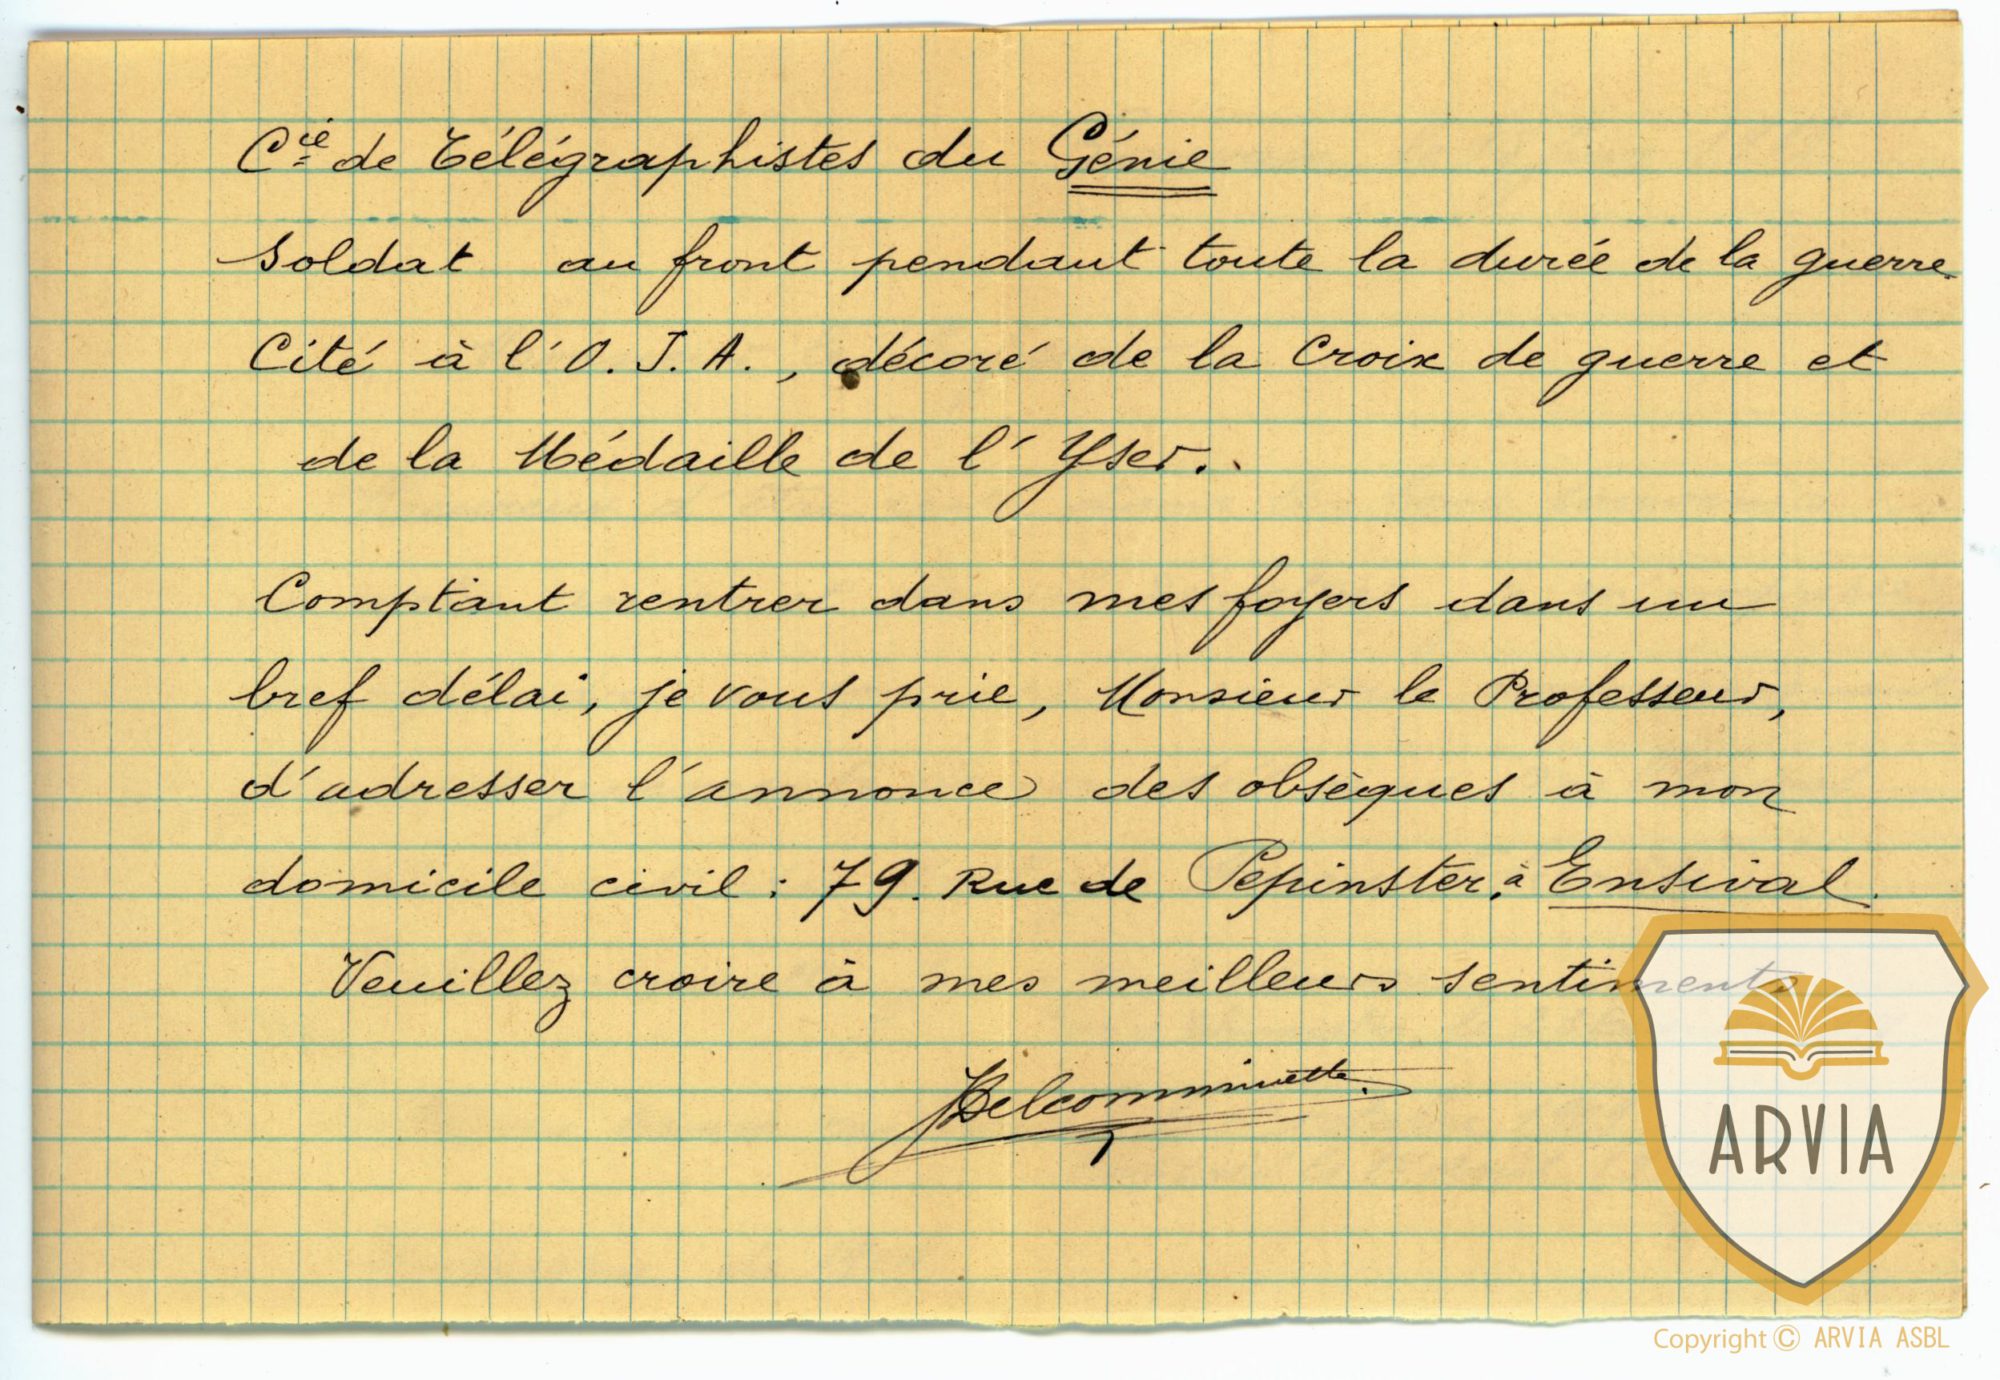 Cie de Télégraphistes du Génie
Soldat au front pendant toute la durée de la guerre.
Cité à l'O. J. A., décoré de la Croix de guerre et
de la Médaille de l'Yser.
Comptant rentrer dans mes foyers dans un
bref délai, je vous prie, Monsieur le Professeur,
d'adresser l'annonce des obsèques à mon
domicile civil : 79. Rue de Pepinster, à Ensival.
Veuillez croire à mes meilleurs sentiments
JDelcomminette.
ARVIA
Copyright © ARVIA ASBL